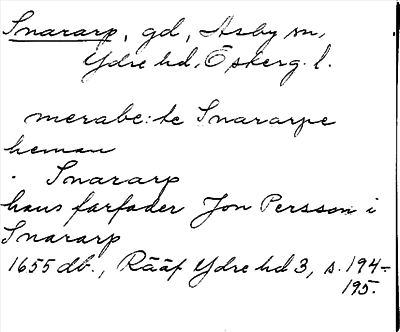 Snararp, gd, Asby sn,
Ydre hd, Öskerg. l.
merabe: te Snararpe
heman
Snararp
hans farfader Jon Persson i
Snararp
1655 db., Rääf Ydre hd 3, s. 194-
195.